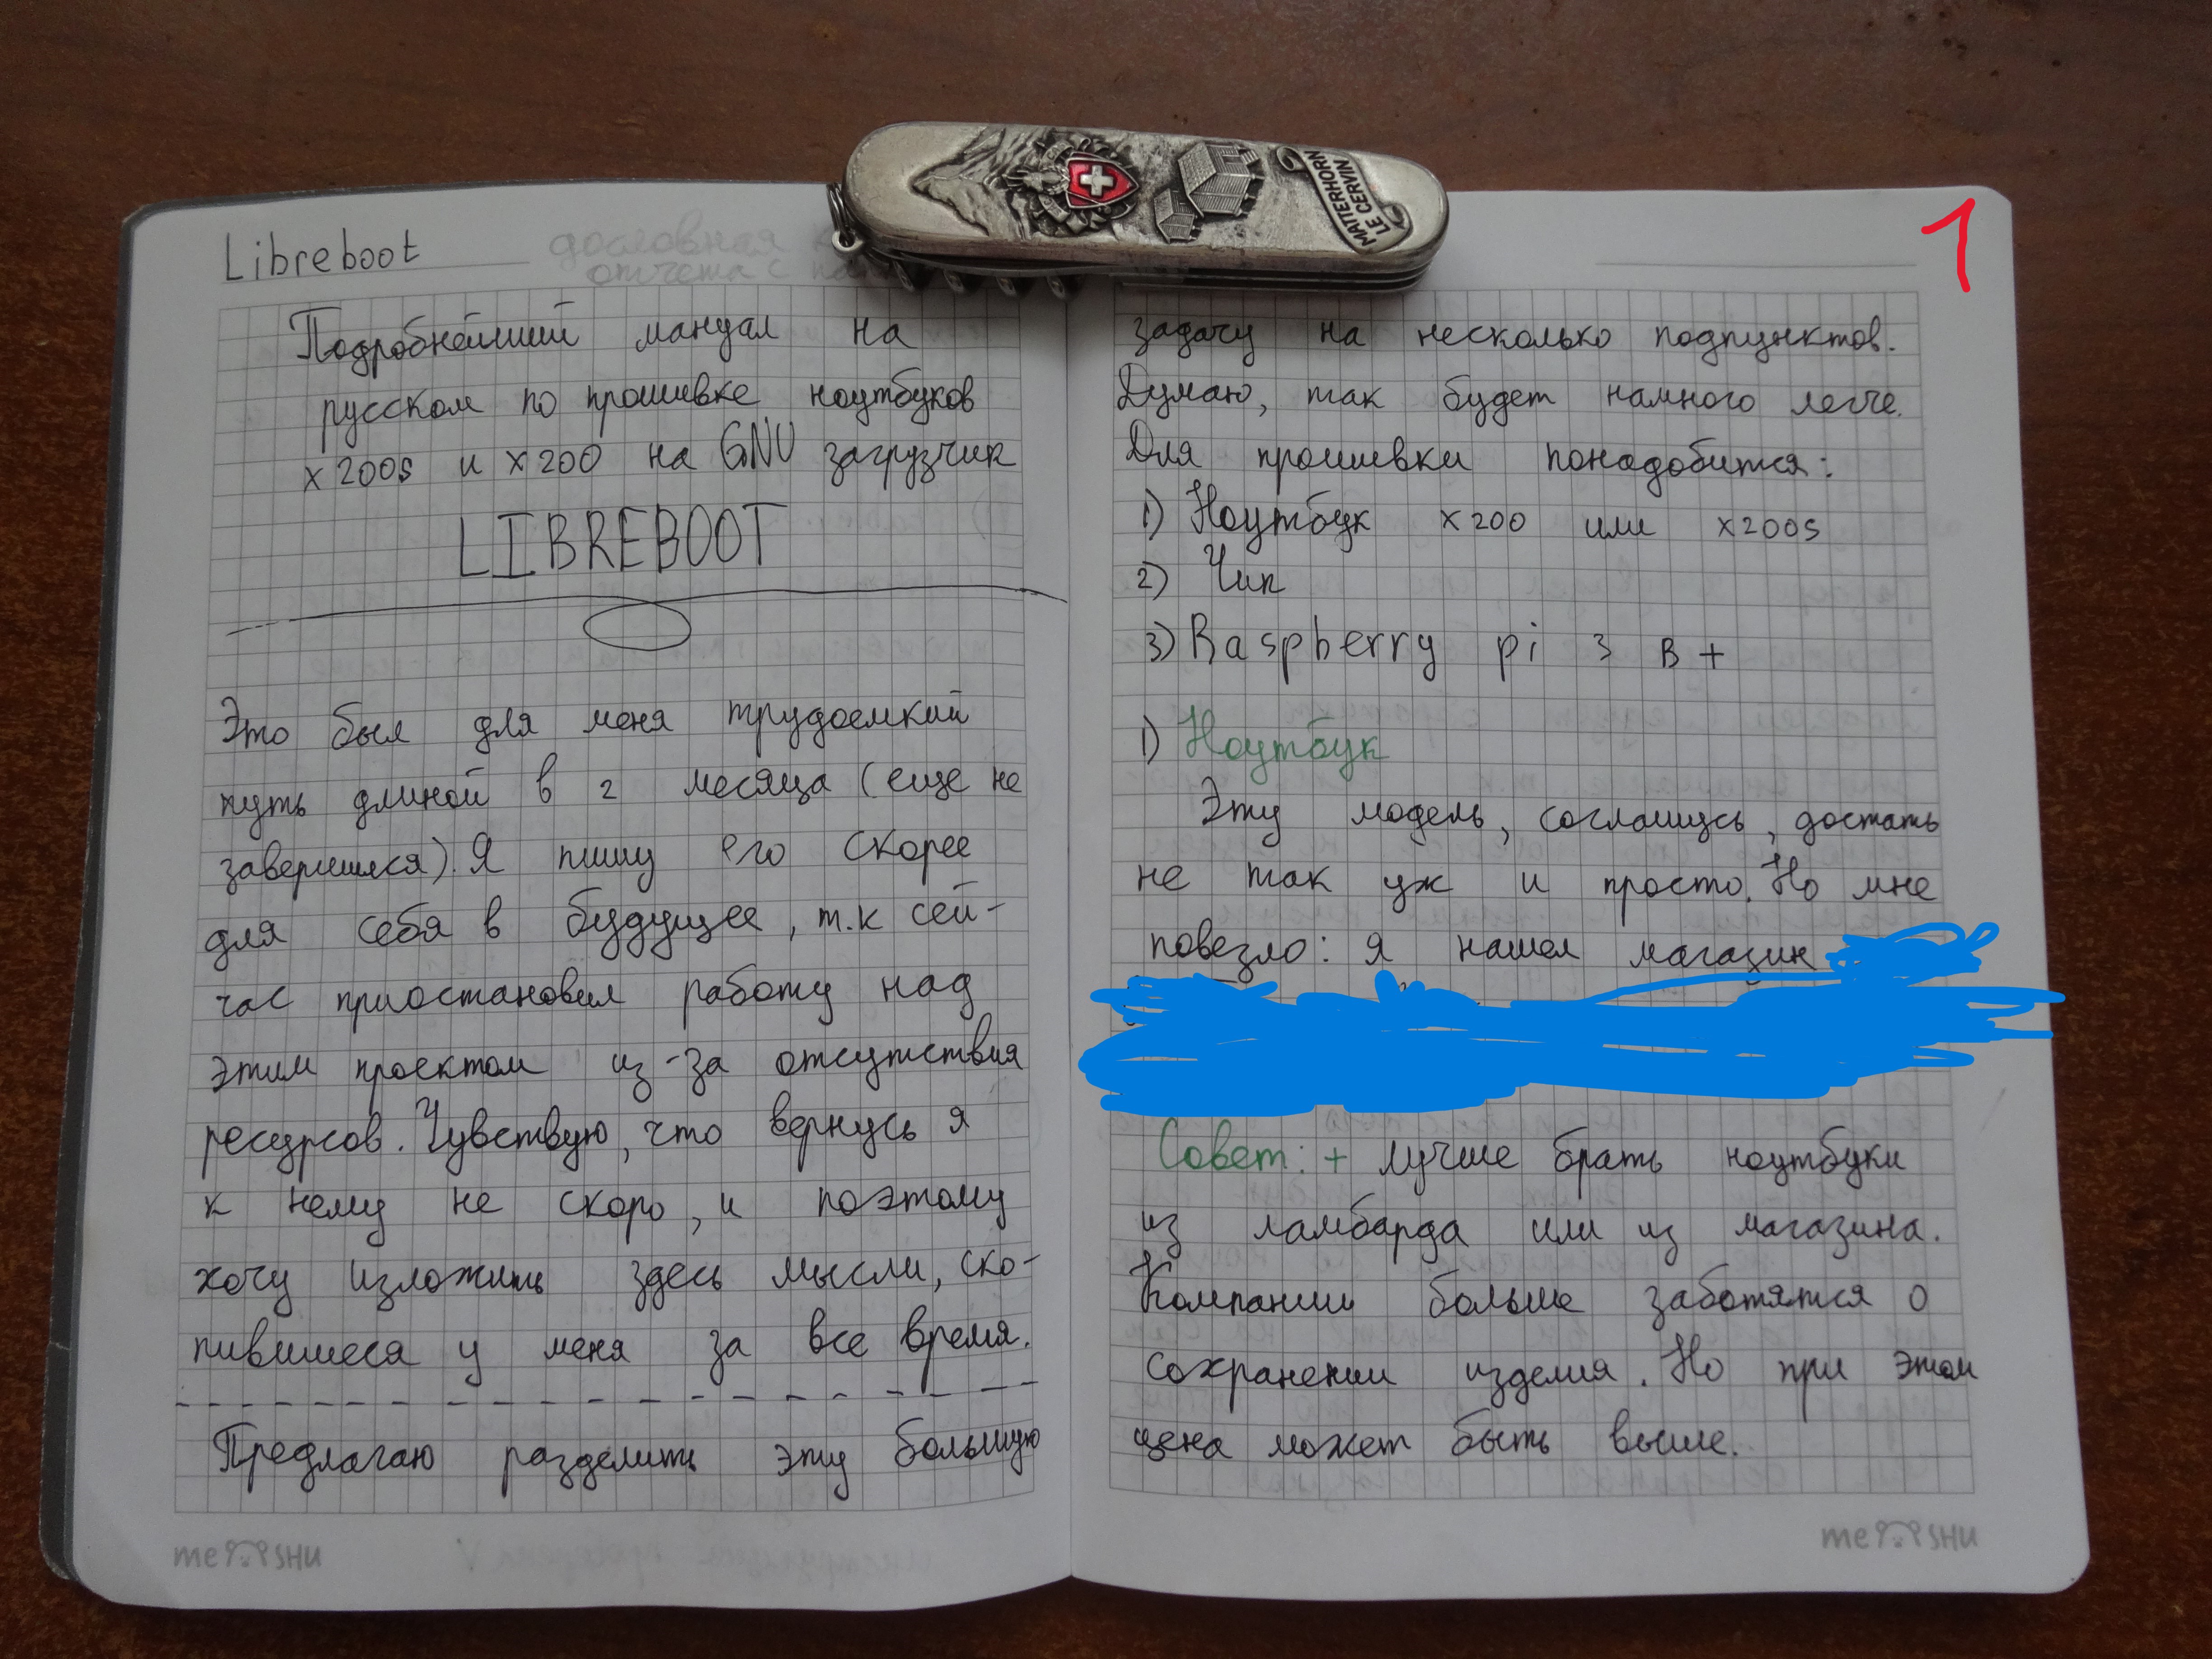 Libreboot
дословная
отчета с
Подробнейший мануал на
русском по прошивке ноутбуков
x200s и x200 на GNU загрузчик
LIBREBOOT
Это был для меня трудоемкий
путь длиной в 2 месяца (еще не
завершился). Я пишу его скорее
для себя в будущее, т.к сей-
час приостановил работу над
этим проектом из-за отсутствия
ресурсов. Чувствую, что вернусь я
к нему не скоро, и поэтому
хочу изложить здесь мысли, ско-
пившиеся у меня за все время.
Предлагаю разделить эту большую
me SHU
MATTERHORN
LE CERVIN
1
задачу на несколько подпунктов.
Думаю, так будет намного легче.
Для прошивки понадобится:
1) Ноутбук x200 или x200s
2) Чип
3) Raspberry pi 3 B +
1) Ноутбук
Эту модель, соглашусь, достать
не так уж и просто. Но мне
повезло: я нашел магазин
Совет: + лучше брать ноутбуки
из ламбарда или из магазина.
Компании больше заботятся о
сохранении изделия. Но при этом
цена может быть выше.
me SHU